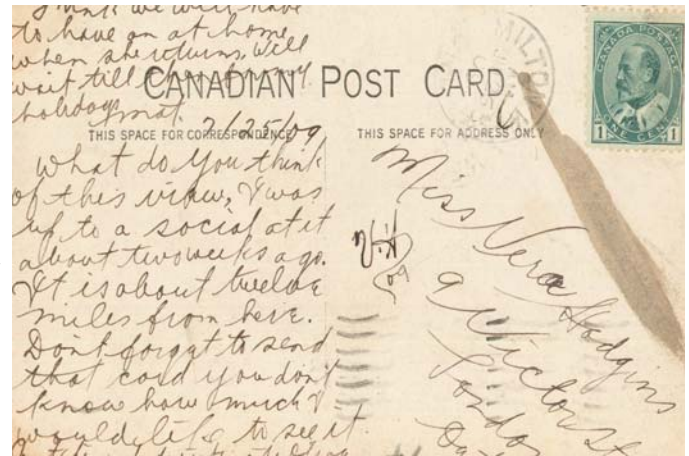 think we will have
to have an at home
when she returns. Will
wait till
holidays mat.
CANADIAN POST CARD
MILTON
CANADA POSTAGE
1 ONE CENT 1
THIS SPACE FOR CORRESPONDENCE
THIS SPACE FOR ADDRESS ONLY
2/25/09
What do you think
of this view, I was
up to a social at it
about two weeks ago.
It is about twelve
miles from here.
Dont forget to send
that card you dont
know how much I
would like to see it
Miss Vera Hodgins
9 Victor St
London
V.H.
09